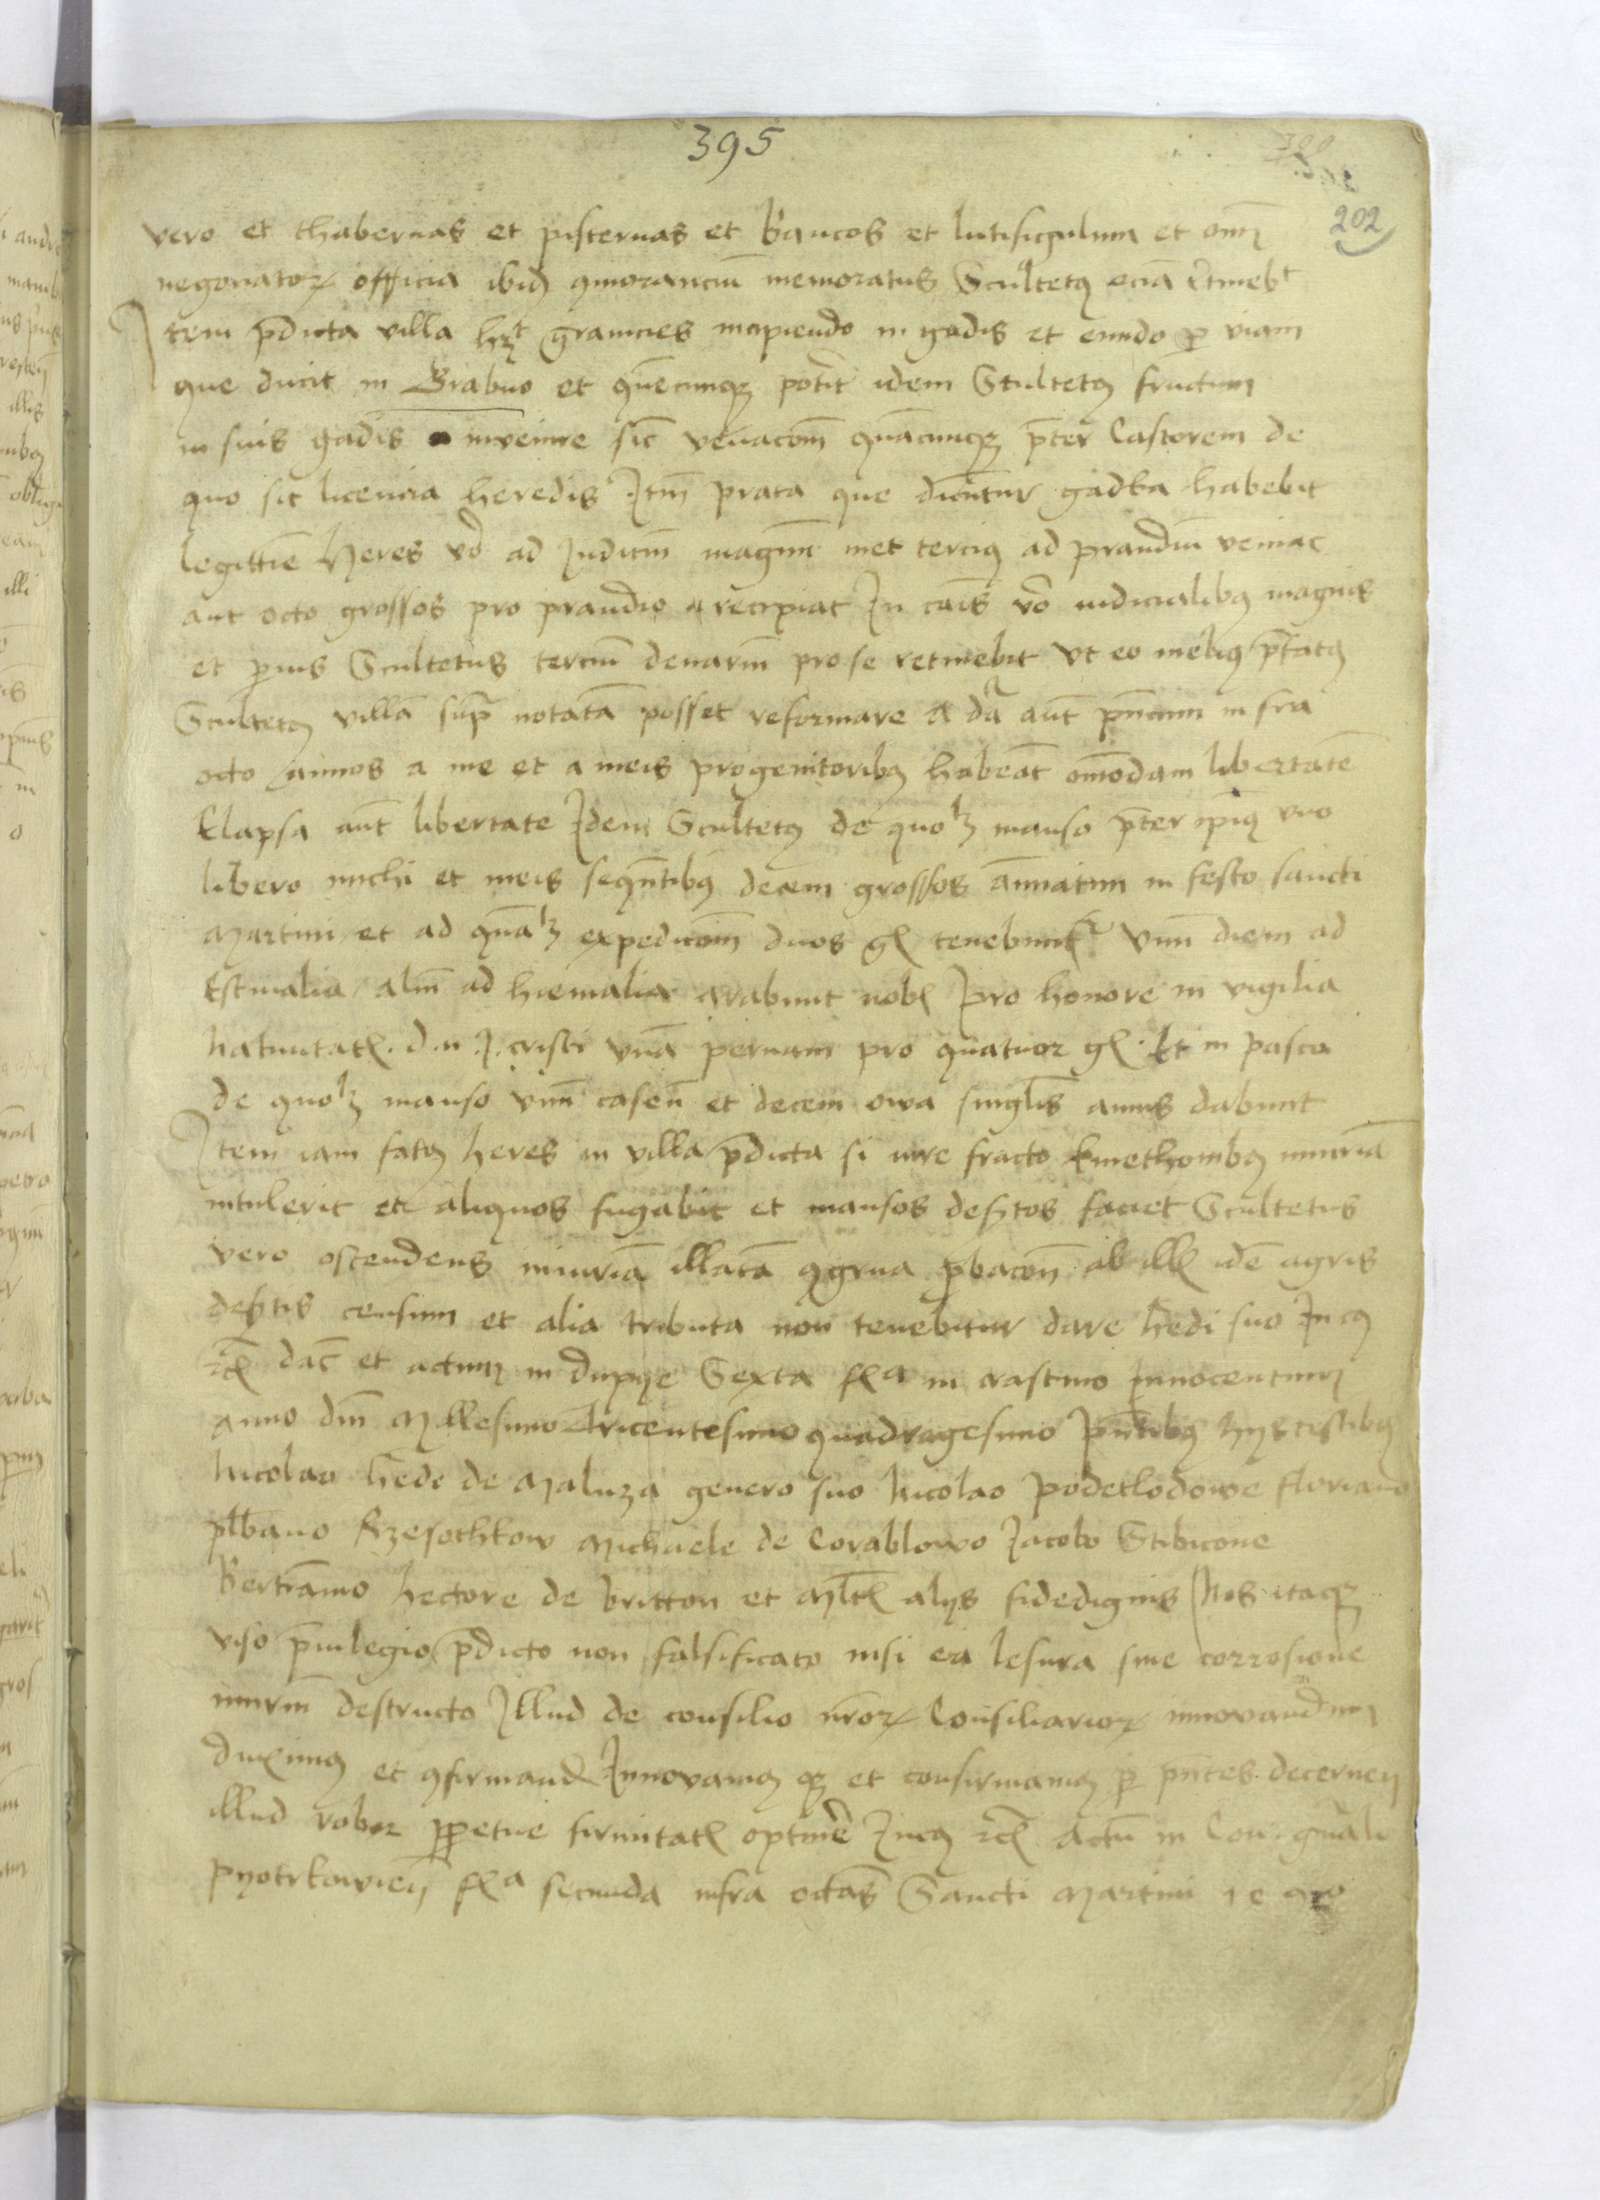 395
202
vero et thabernas et pisternas et Bancos et lutifigulum et om̄
negociatoꝝ officia ibid ꝯmoranciū memoratus Scultetꝯ eciā retineb͛t
Item p̄dicta villa hꝫt granicies incipiendo in gadis et eundo ꝑ viam
que ducit in Grabno et quēcunqꝫ pot̄it idem Scultetꝯ fructum
in suis gadis invenire sic venacōm quācunqꝫ p̄ter Castorem de
quo sit licencia heredis Itm̄ prata que dicūntur gadka habebit
legittīe Heres v̄o ad Judiciū magnū met tercius ad prandiū veniat
aut octo grossos pro prandio recipiat In cāis v̄o iudicialibꝯ magnis
et ꝑuis Scultetus terciū denariū pro se retinebit Ut eo meliꝯ p̄fatꝯ
Scultetꝯ villā sup̄ notatā posset reformare A dā aūt p̄ncium infra
octo annos a me et a meis progenitoribꝯ habeāt om̄odam libertatē
Elapsa aūt libertate Idem Scultetꝯ de quolꝫ manso p̄ter ip̄iꝯ vno
libero michi et meis seqn̄tibꝯ decem grossos ānuatim in festo sancti
Martini et ad quālꝫ expedicōm duos gꝭ tenebuntr̄ Vnū diem ad
Estivalia aliū ad hiemalia arabunt nobꝭ Pro honore in vigilia
Natiuitatꝭ . d . n . J . cristi vnā pernam pro quatuor gꝭ . Et in pasca
de quolꝫ manso vnū caseū et decem owa singlis annis dabunt
Item iam fatꝯ heres in villa p̄dicta si iure fracto kmethonibꝯ iniuriā
intulerit et aliquos fugabit et mansos desr̄tos faciet Scultetus
vero ostendens iniuriā illatā ꝯgrua ꝓbacōn ab illꝭ idē agris
desr̄tis censum et alia tributa non tenebitur dare hēdi suo In cꝯ
rꝭ dat̄ et actum in dupye Sexta fꝭa in crastino Innocentum
anno dn̄i Millesimo tricentesimo quadragesimo P̄ntibꝯ hys testibꝯ
Nicolao hēde de Maluza genero suo Nicolao Podetlodowe floriano
plbano Rzesothkow Michaele de Corablowo Jacobo Stibicone
Bertrāmo hectore de britton et Mltꝭ alys fidedignis Nos itaqꝫ
viso p̄uilegio p̄dicto non falsificato nisi ex lesura siue corrosione
muriū destructo Illud de consilio nr̄oꝝ Consiliarioꝝ innovandum
duximꝯ et ꝯfirmand Innovamꝯ qꝫ et confirmamꝯ ꝑ p̄ntes decernen
illud robor ꝑpetue firmitatꝭ optinē In cꝯ rꝭ Actū in Con. gn̄ali
Pyotrkowien fꝭa secunda infra octās Sancti Martini